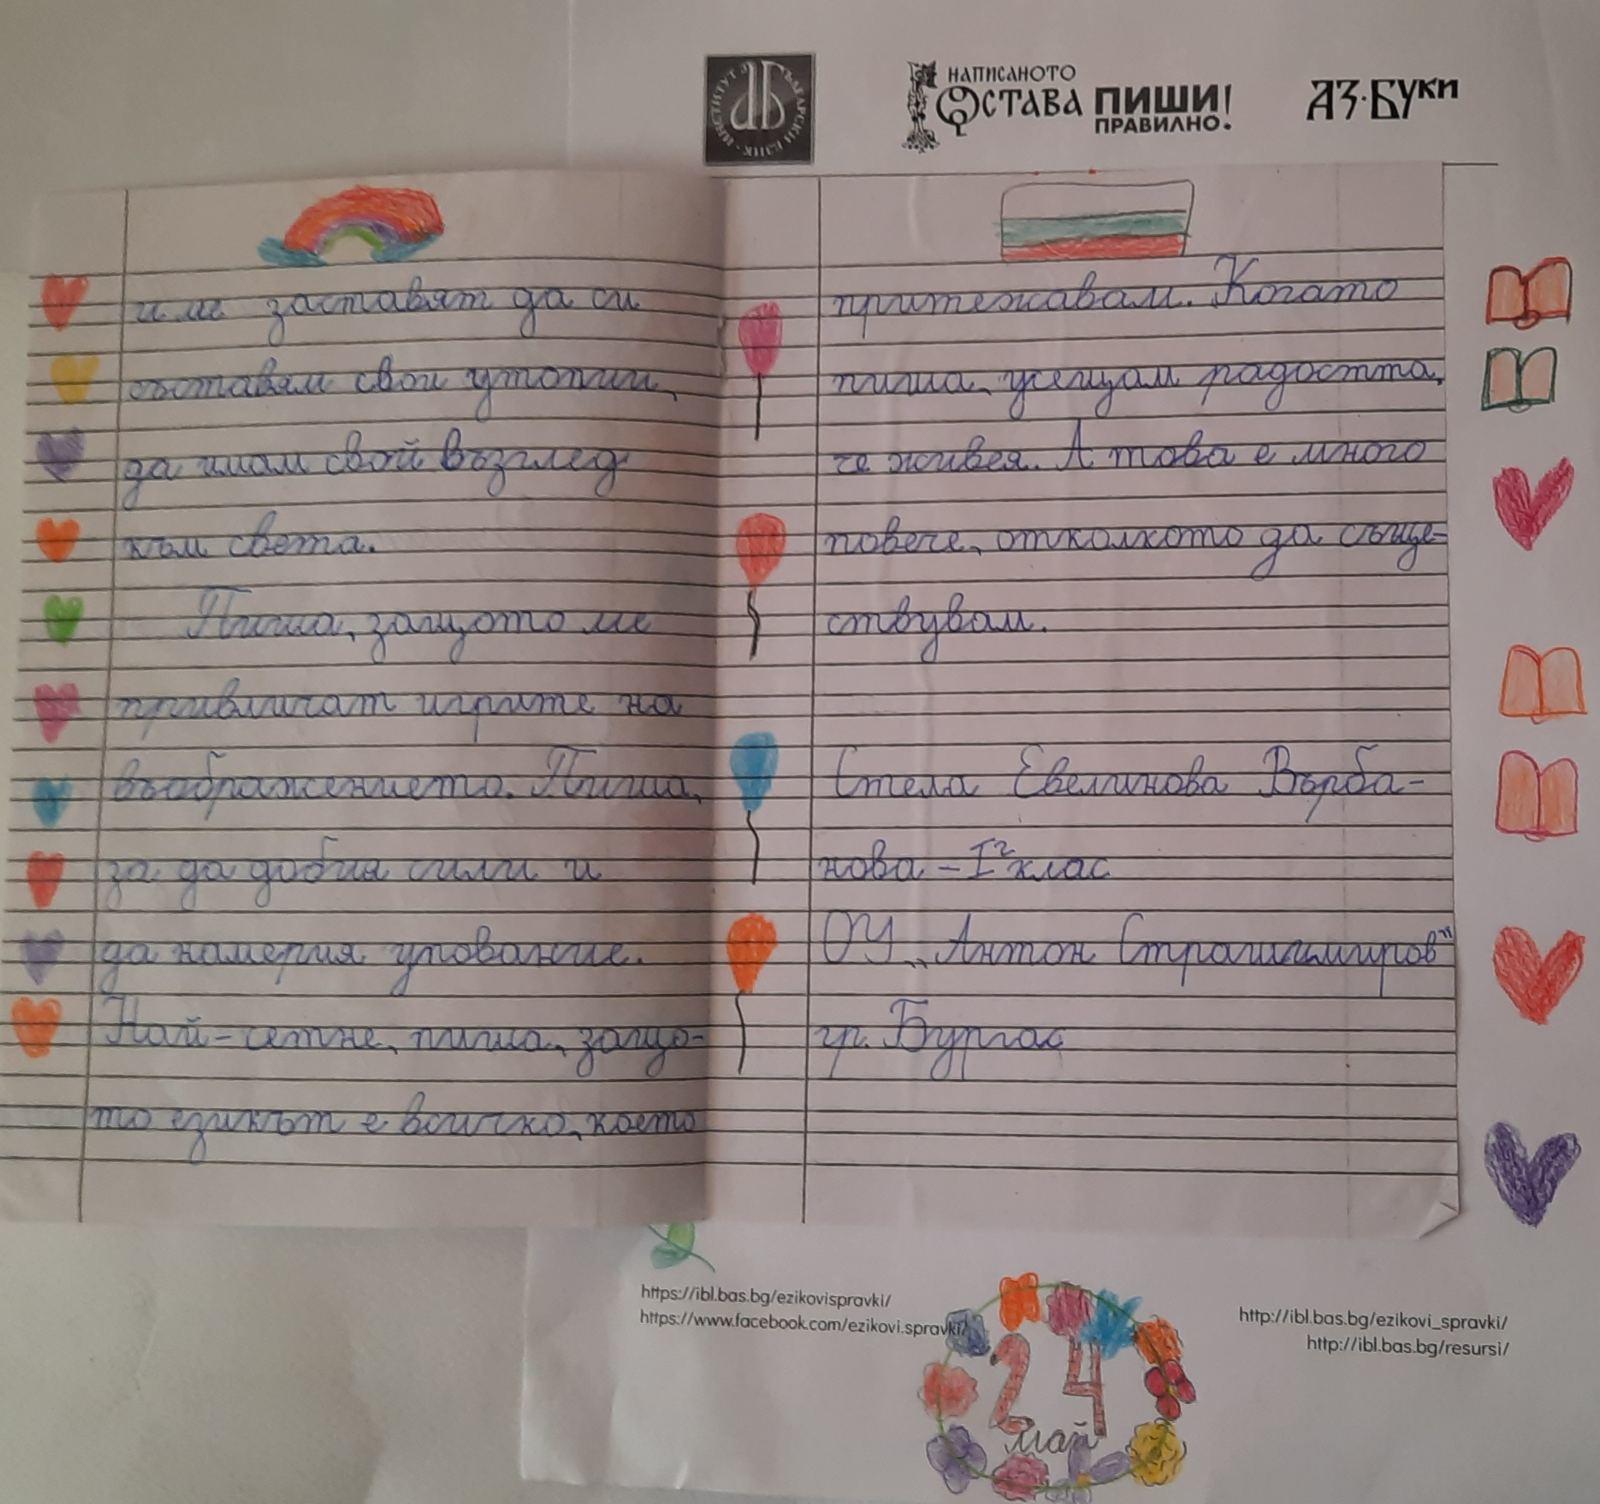 ИНСТИТУТ ЗА БЪЛГАРСКИ ЕЗИК
НАПИСАНОТО
ОСТАВА ПИШИ
ПРАВИЛНО!
АЗ·БУКИ
и ме заставят да си
съставям свои утопии,
да имам свой възглед
към света.
Пиша, защото ме
привличат игрите на
въображението. Пиша,
за да добия сили и
да намеря упование.
Най-сетне, пиша, защо-
то езикът е всичко, което
притежавам. Когато
пиша, усещам радостта,
че живея. А това е много
повече, отколкото да съще-
ствувам.
Стела Евелинова Върба-
нова - I г клас
ОУ „Антон Страшимиров"
гр. Бургас
https://ibl.bas.bg/ezikovispravki/
https://www.facebook.com/ezikovi.spravki/
http://ibl.bas.bg/ezikovi_spravki/
http://ibl.bas.bg/resursi/
24
май